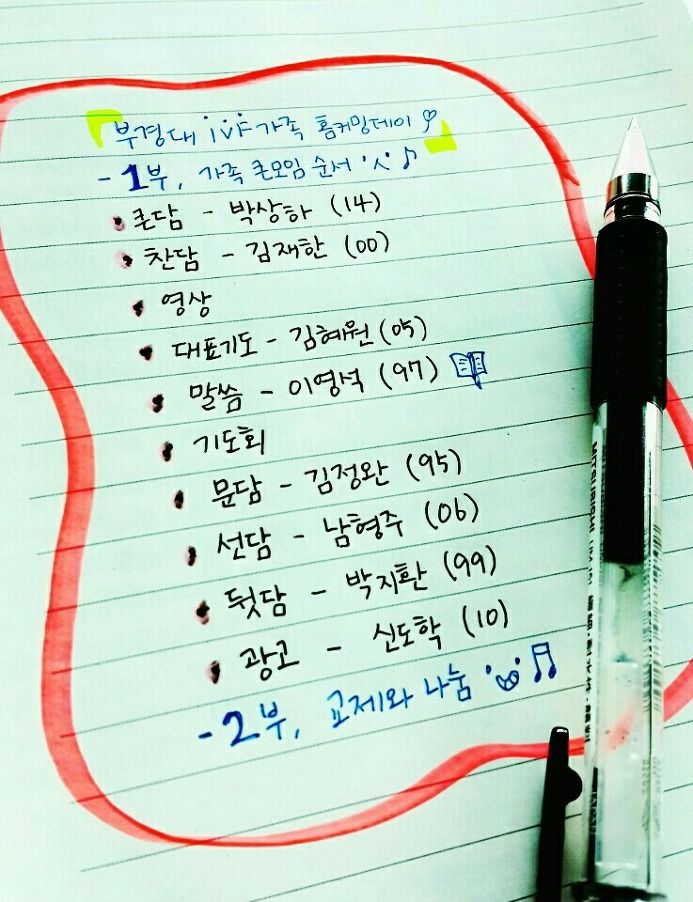 부경대 ivf 가족 홈커밍데이
- 1부, 가족 큰모임 순서
• 큰담 - 박상하 (14)
• 찬담 - 김재한 (00)
• 영상
• 대표기도 - 김혜원 (05)
• 말씀 - 이영석 (97)
• 기도회
• 문담 - 김정완 (95)
• 선담 - 남형주 (06)
• 뒷담 - 박지환 (99)
• 광고 - 신도학 (10)
- 2부, 교제와 나눔
MITSUBISHI